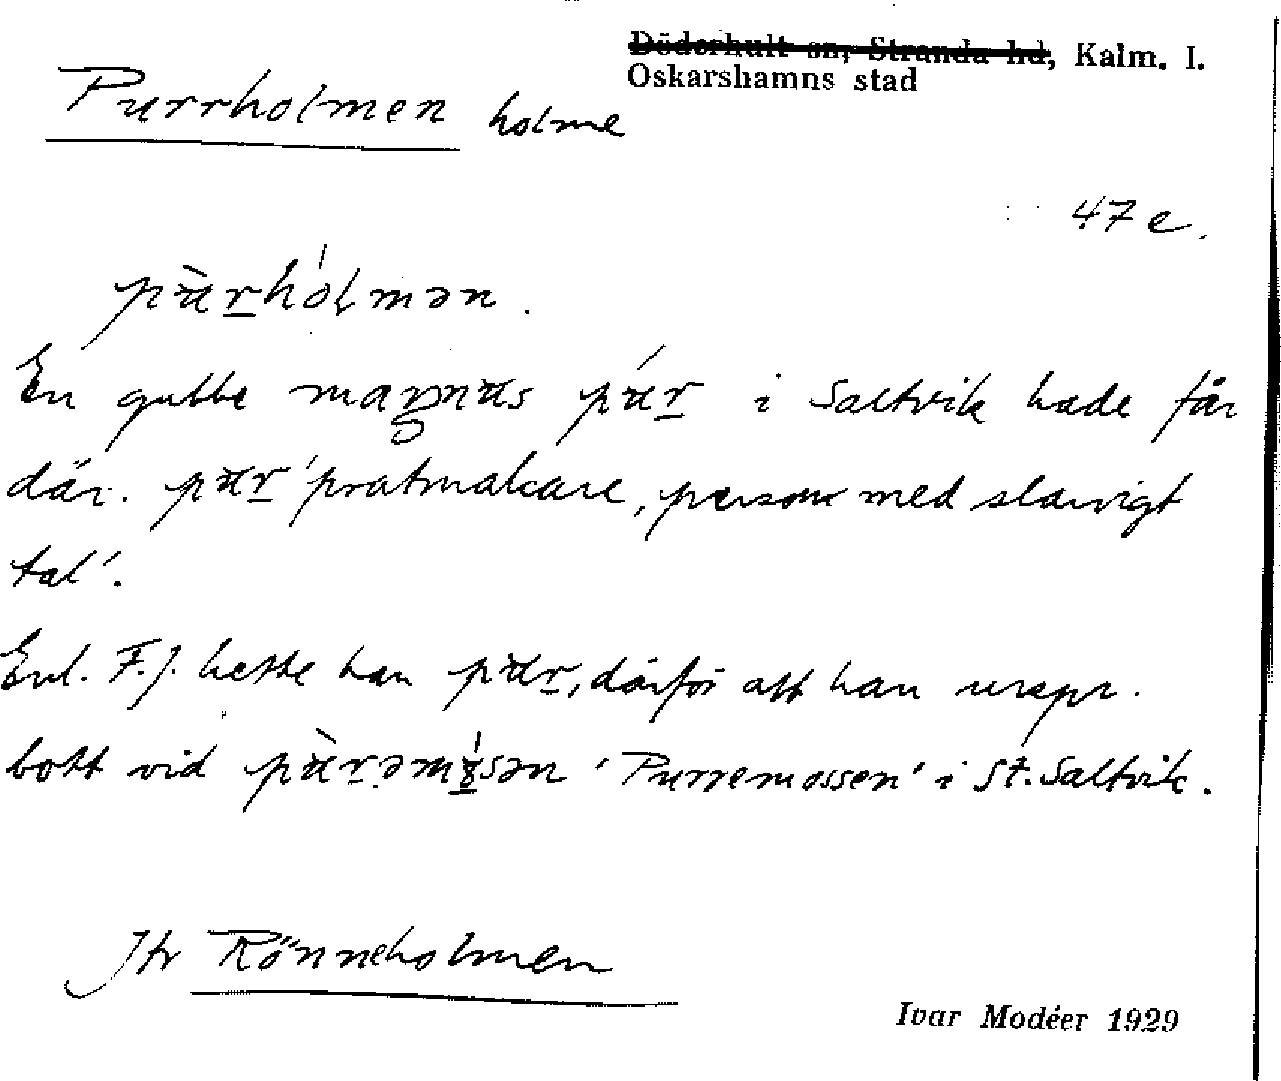 Döderhult sn, Stranda hd, Kalm. l.
Oskarshamns stad
Purrholmen holme
47 e.
pùrhólmən.
En gubbe magnus púr i Saltvik hade får
där. pur 'pratmakare, person med slarvigt
tal'.
Enl. F.J. hette han pur, därför att han urspr.
bott vid pùrəmısən 'Purremossen' i St. Saltvik.
Jfr Rönneholmen
Ivar Modéer 1929